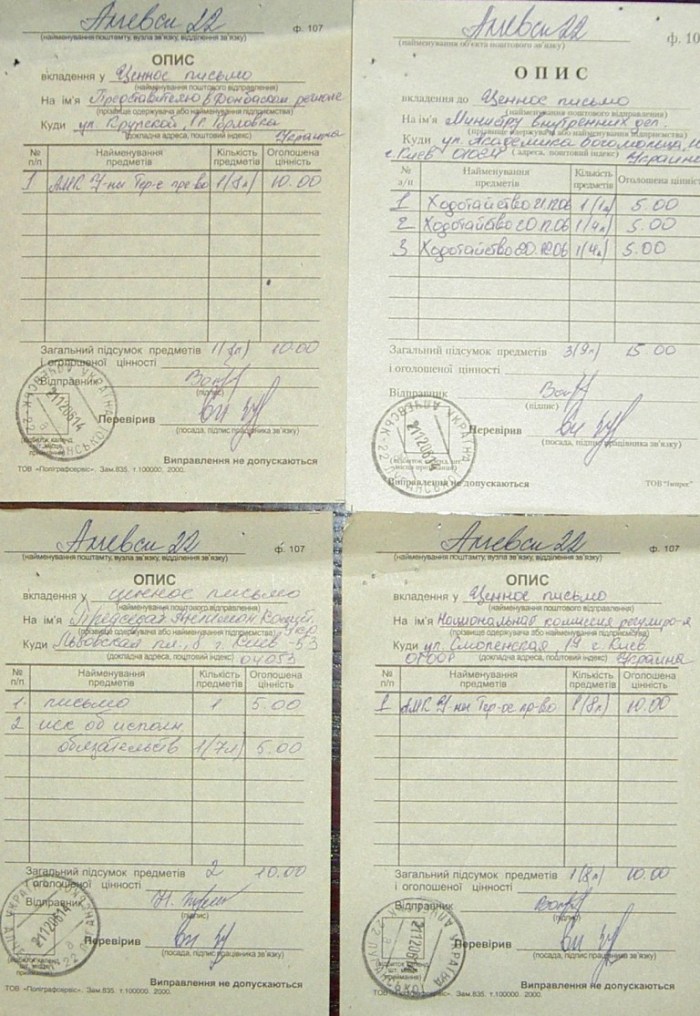 Алчевск 22
ф. 107
(найменування поштамту, вузла зв'язку, відділення зв'язку)
ОПИС
вкладення у Ценное письмо
(найменування поштового відправлення)
На ім'я Представителю в Донбасском регионе
(прізвище одержувача або найменування підприємства)
Куди ул. Крупской, г. Горловка
(докладна адреса, поштовий індекс) Украина
№ п/п Найменування предметів Кількість предметів Оголошена цінність
1 АМК У-ны Тер-ое пр-во 1(8л) 10.00
Загальний підсумок предметів 1(8л) 10.00
і оголошеної цінності
Відправник
(підпис)
Перевірив
(посада, підпис працівника зв'язку)
Виправлення не допускаються
ТОВ «Поліграфсервіс». Зам.835. т.100000. 2000.
Алчевск 22
ф. 10
(найменування об'єкта поштового зв'язку)
ОПИС
вкладення до Ценное письмо
(найменування поштового відправлення)
На ім'я Министру внутренних дел
(прізвище одержувача або найменування підприємства)
Куди ул. Академика Богомольца, 10
г. Киев 01024 (адреса, поштовий індекс) Украина
№ з/п Найменування предметів Кількість предметів Оголошена цінність
1 Ходотайство 21.12.06 1(1л) 5.00
2 Ходотайство 20.12.06 1(4л) 5.00
3 Ходотайство 20.12.06 1(4л) 5.00
Загальний підсумок предметів 3(9л) 15.00
і оголошеної цінності
Відправник
(підпис)
Перевірив
(посада, підпис працівника зв'язку)
Виправлення не допускаються
Алчевск 22
ф. 107
(найменування поштамту, вузла зв'язку, відділення зв'язку)
ОПИС
вкладення у ценное письмо
(найменування поштового відправлення)
На ім'я
(прізвище одержувача або найменування підприємства)
Куди Львовская пл., 8 г. Киев-53
(докладна адреса, поштовий індекс) 04053
№ п/п Найменування предметів Кількість предметів Оголошена цінність
1 письмо 1 5.00
2 иск об исполн.
обязательств 1(7л) 5.00
Загальний підсумок предметів 2 10.00
і оголошеної цінності
Відправник
(підпис)
Перевірив
(посада, підпис працівника зв'язку)
Виправлення не допускаються
ТОВ «Поліграфсервіс». Зам.835. т.100000. 2000.
Алчевск 22
ф. 107
(найменування поштамту, вузла зв'язку, відділення зв'язку)
ОПИС
вкладення у Ценное письмо
(найменування поштового відправлення)
На ім'я Национальная комиссия регулиро-я
(прізвище одержувача або найменування підприємства)
Куди ул. Смоленская, 19 г. Киев
(докладна адреса, поштовий індекс) Украина
№ п/п Найменування предметів Кількість предметів Оголошена цінність
1 АМК У-ны Тер-ое пр-во 1(8л) 10.00
Загальний підсумок предметів 1(8л) 10.00
і оголошеної цінності
Відправник
(підпис)
Перевірив
(посада, підпис працівника зв'язку)
Виправлення не допускаються
ТОВ «Поліграфсервіс». Зам.835. т.100000. 2000.